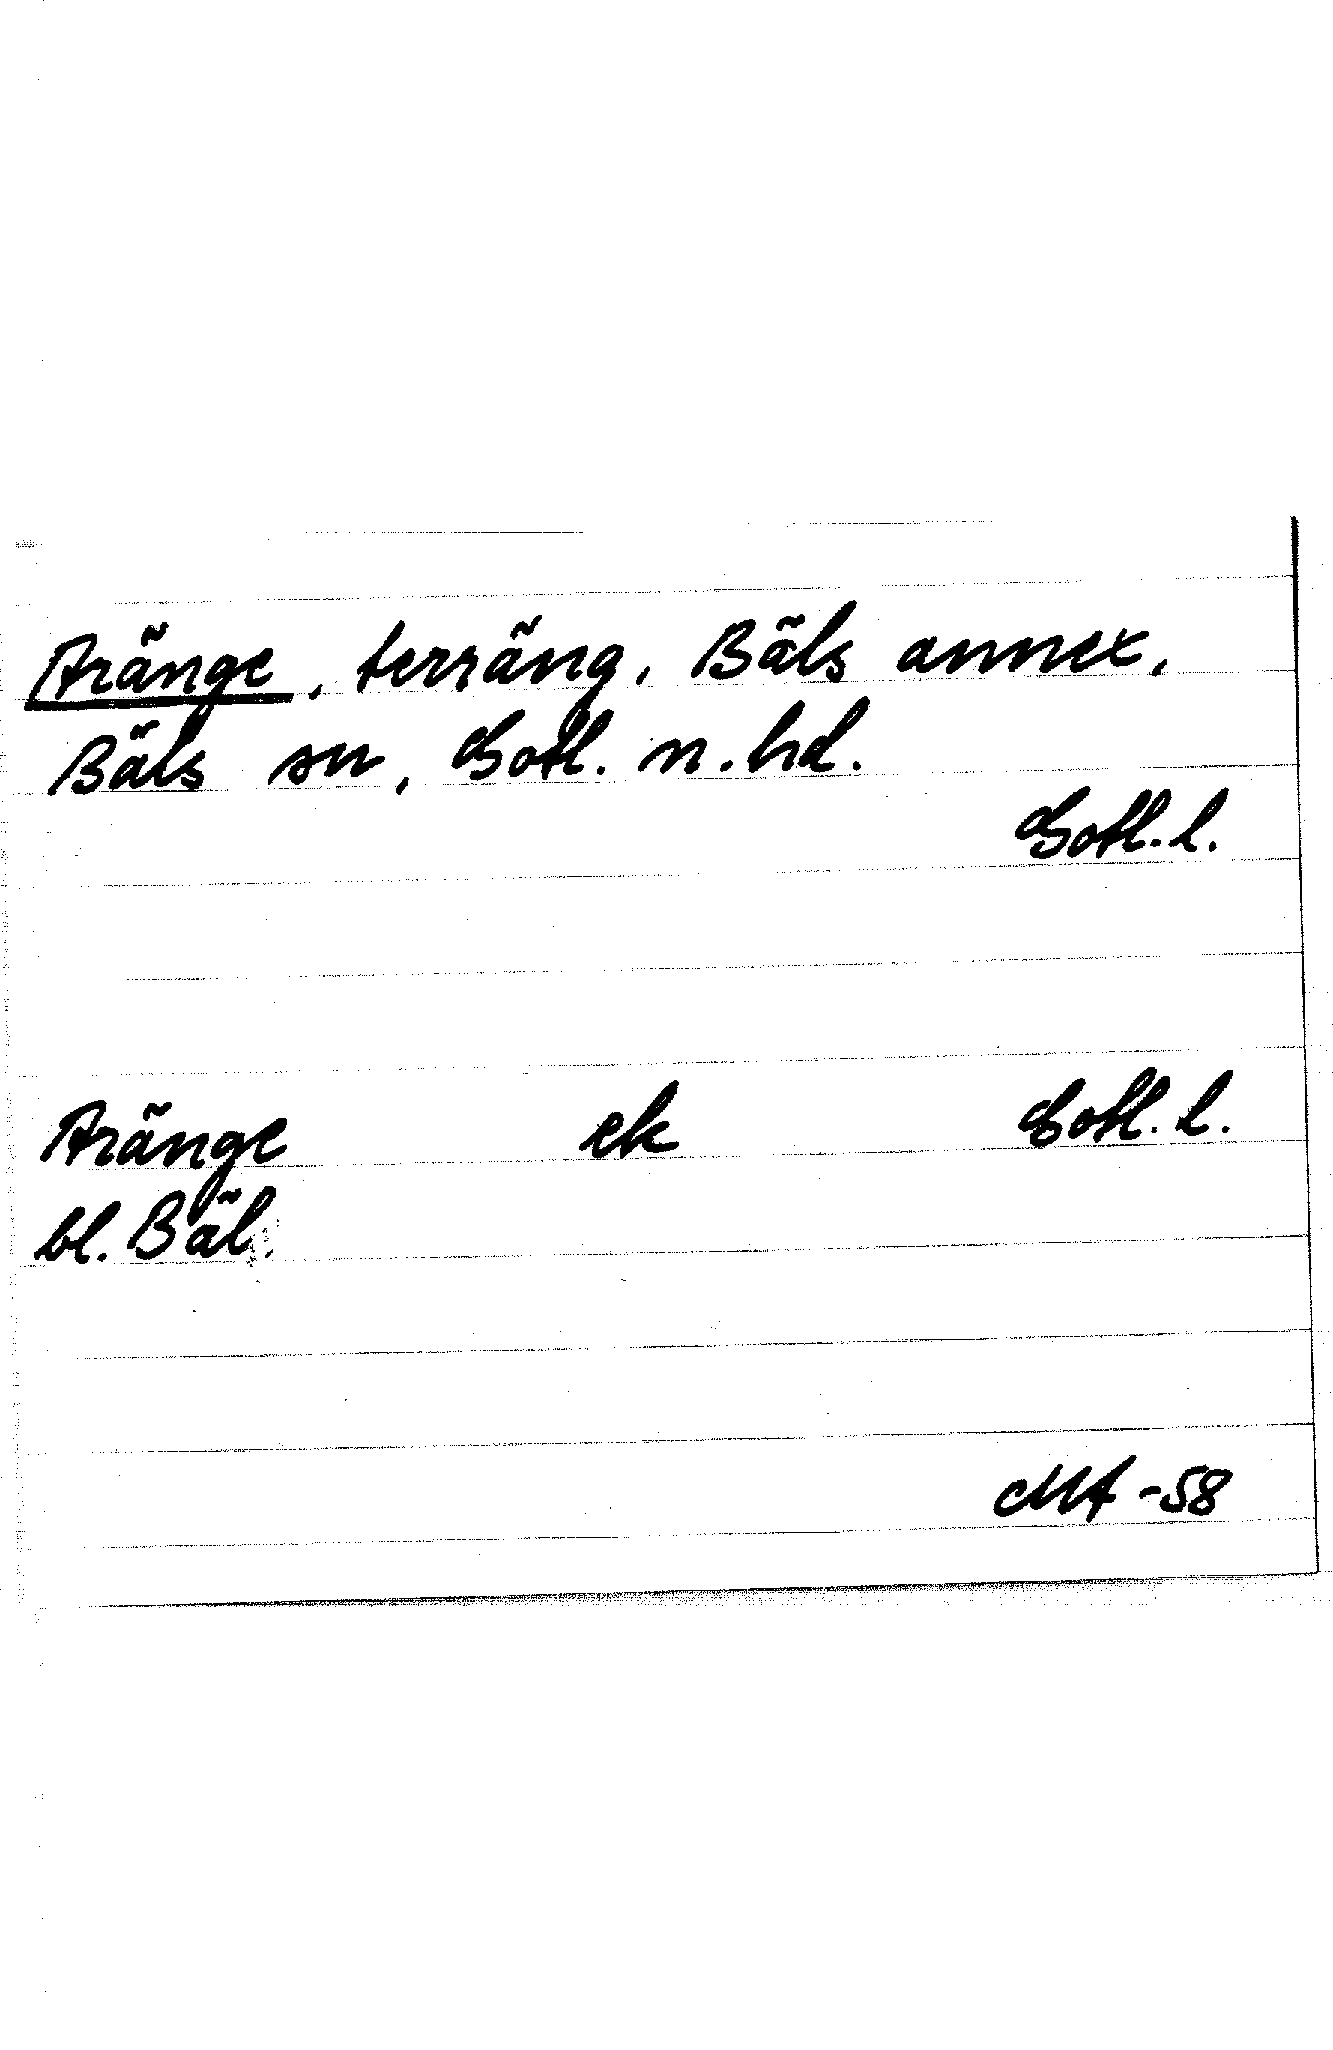 Aränge, terräng, Bäls annex,
Bäls sn, Gotl. n. hd.
Gotl. l.
Aränge ek Gotl. l.
bl. Bäl.
MA -58